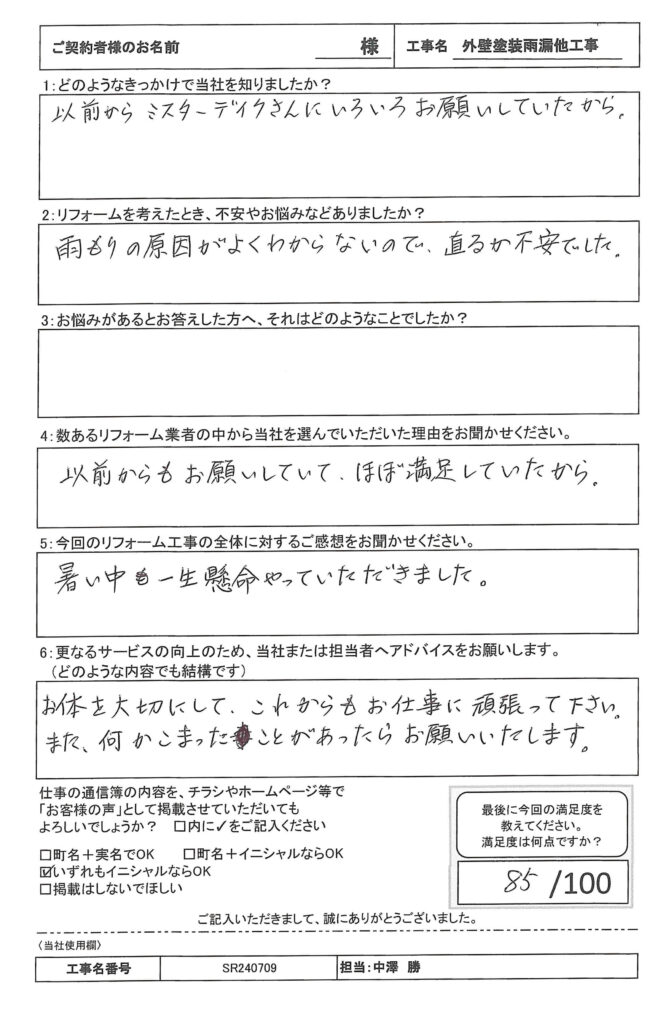 ご契約者様のお名前 様 工事名 外壁塗装雨漏他工事
1:どのようなきっかけで当社を知りましたか?
以前からミスターデイクさんにいろいろお願いしていたから。
2:リフォームを考えたとき、不安やお悩みなどありましたか?
雨もりの原因がよくわからないので、直るか不安でした。
3:お悩みがあるとお答えした方へ、それはどのようなことでしたか?
4:数あるリフォーム業者の中から当社を選んでいただいた理由をお聞かせください。
以前からもお願いしていて、ほぼ満足していたから。
5:今回のリフォーム工事の全体に対するご感想をお聞かせください。
暑い中も一生懸命やっていただきました。
6:更なるサービスの向上のため、当社または担当者へアドバイスをお願いします。
(どのような内容でも結構です)
お体を大切にして、これからもお仕事に頑張って下さい。
また、何かこまったことがあったらお願いいたします。
仕事の通信簿の内容を、チラシやホームページ等で
「お客様の声」として掲載させていただいても
よろしいでしょうか? □内に✓をご記入ください
□町名+実名でOK □町名+イニシャルならOK
☑いずれもイニシャルならOK
□掲載はしないでほしい
最後に今回の満足度を
教えてください。
満足度は何点ですか?
85/100
ご記入いただきまして、誠にありがとうございました。
〈当社使用欄〉
工事名番号 SR240709 担当:中澤 勝